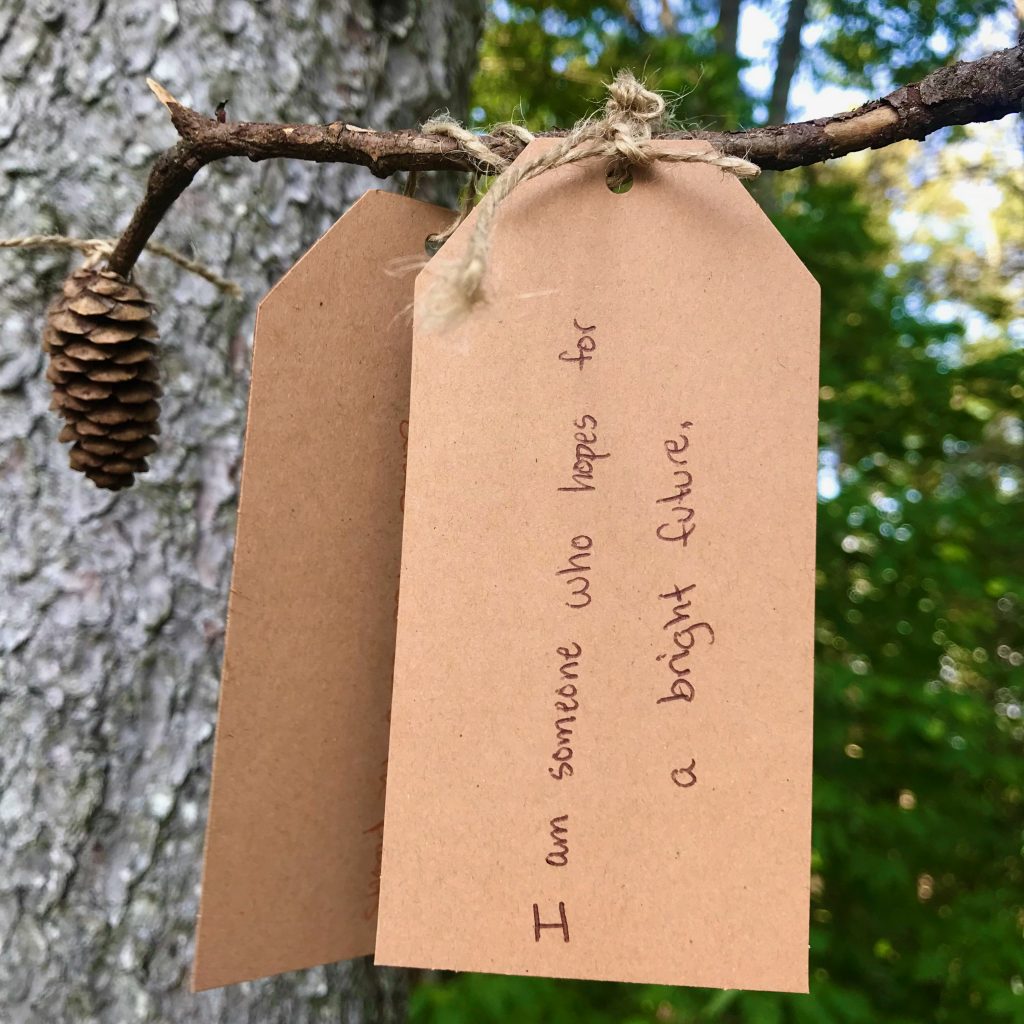 I am someone who hopes for
a bright future.